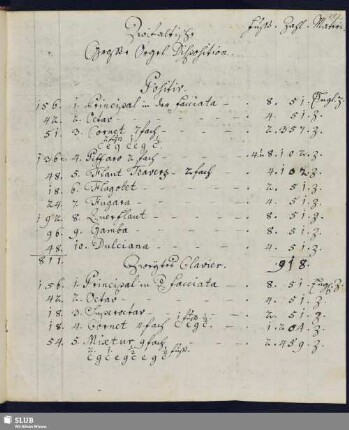 Füß. Zahl. Materi.
Zwifaltische
Grosse Orgel Disposition.
Positiv.
156. 1. Principal in der facciata 8. 51. Engl. Z.
42. 2. Octav 4. 51. Z.
51. 3. Cornet 7 fach 2. 357. Z.
c e g c e g c
136. 4. Piffaro 2 fach 4. u 8. 102. Z.
48. 5. Flaut Travers 2 fach 4. 102. Z.
18. 6. Flagolet 2. 51. Z.
24. 7. Fugara 4. 51. Z.
192. 8. Querflaut 8. 51. Z.
96. 9. Gamba 8. 51. Z.
48. 10. Dulciana 4. 51. Z.
811. 918.
Zweytes Clavier.
156. 1. Principal in facciata 8. 51. Engl. Z.
42. 2. Octav 4. 51. Z.
18. 3. Superoctav 2. 51. Z.
18. 4. Cornet 4 fach c e g c 1. 204. Z.
54. 5. Mixtur 9 fach 2. 459. Z.
c g c e g c e g c füß.
SLUB
Wir führen Wissen.